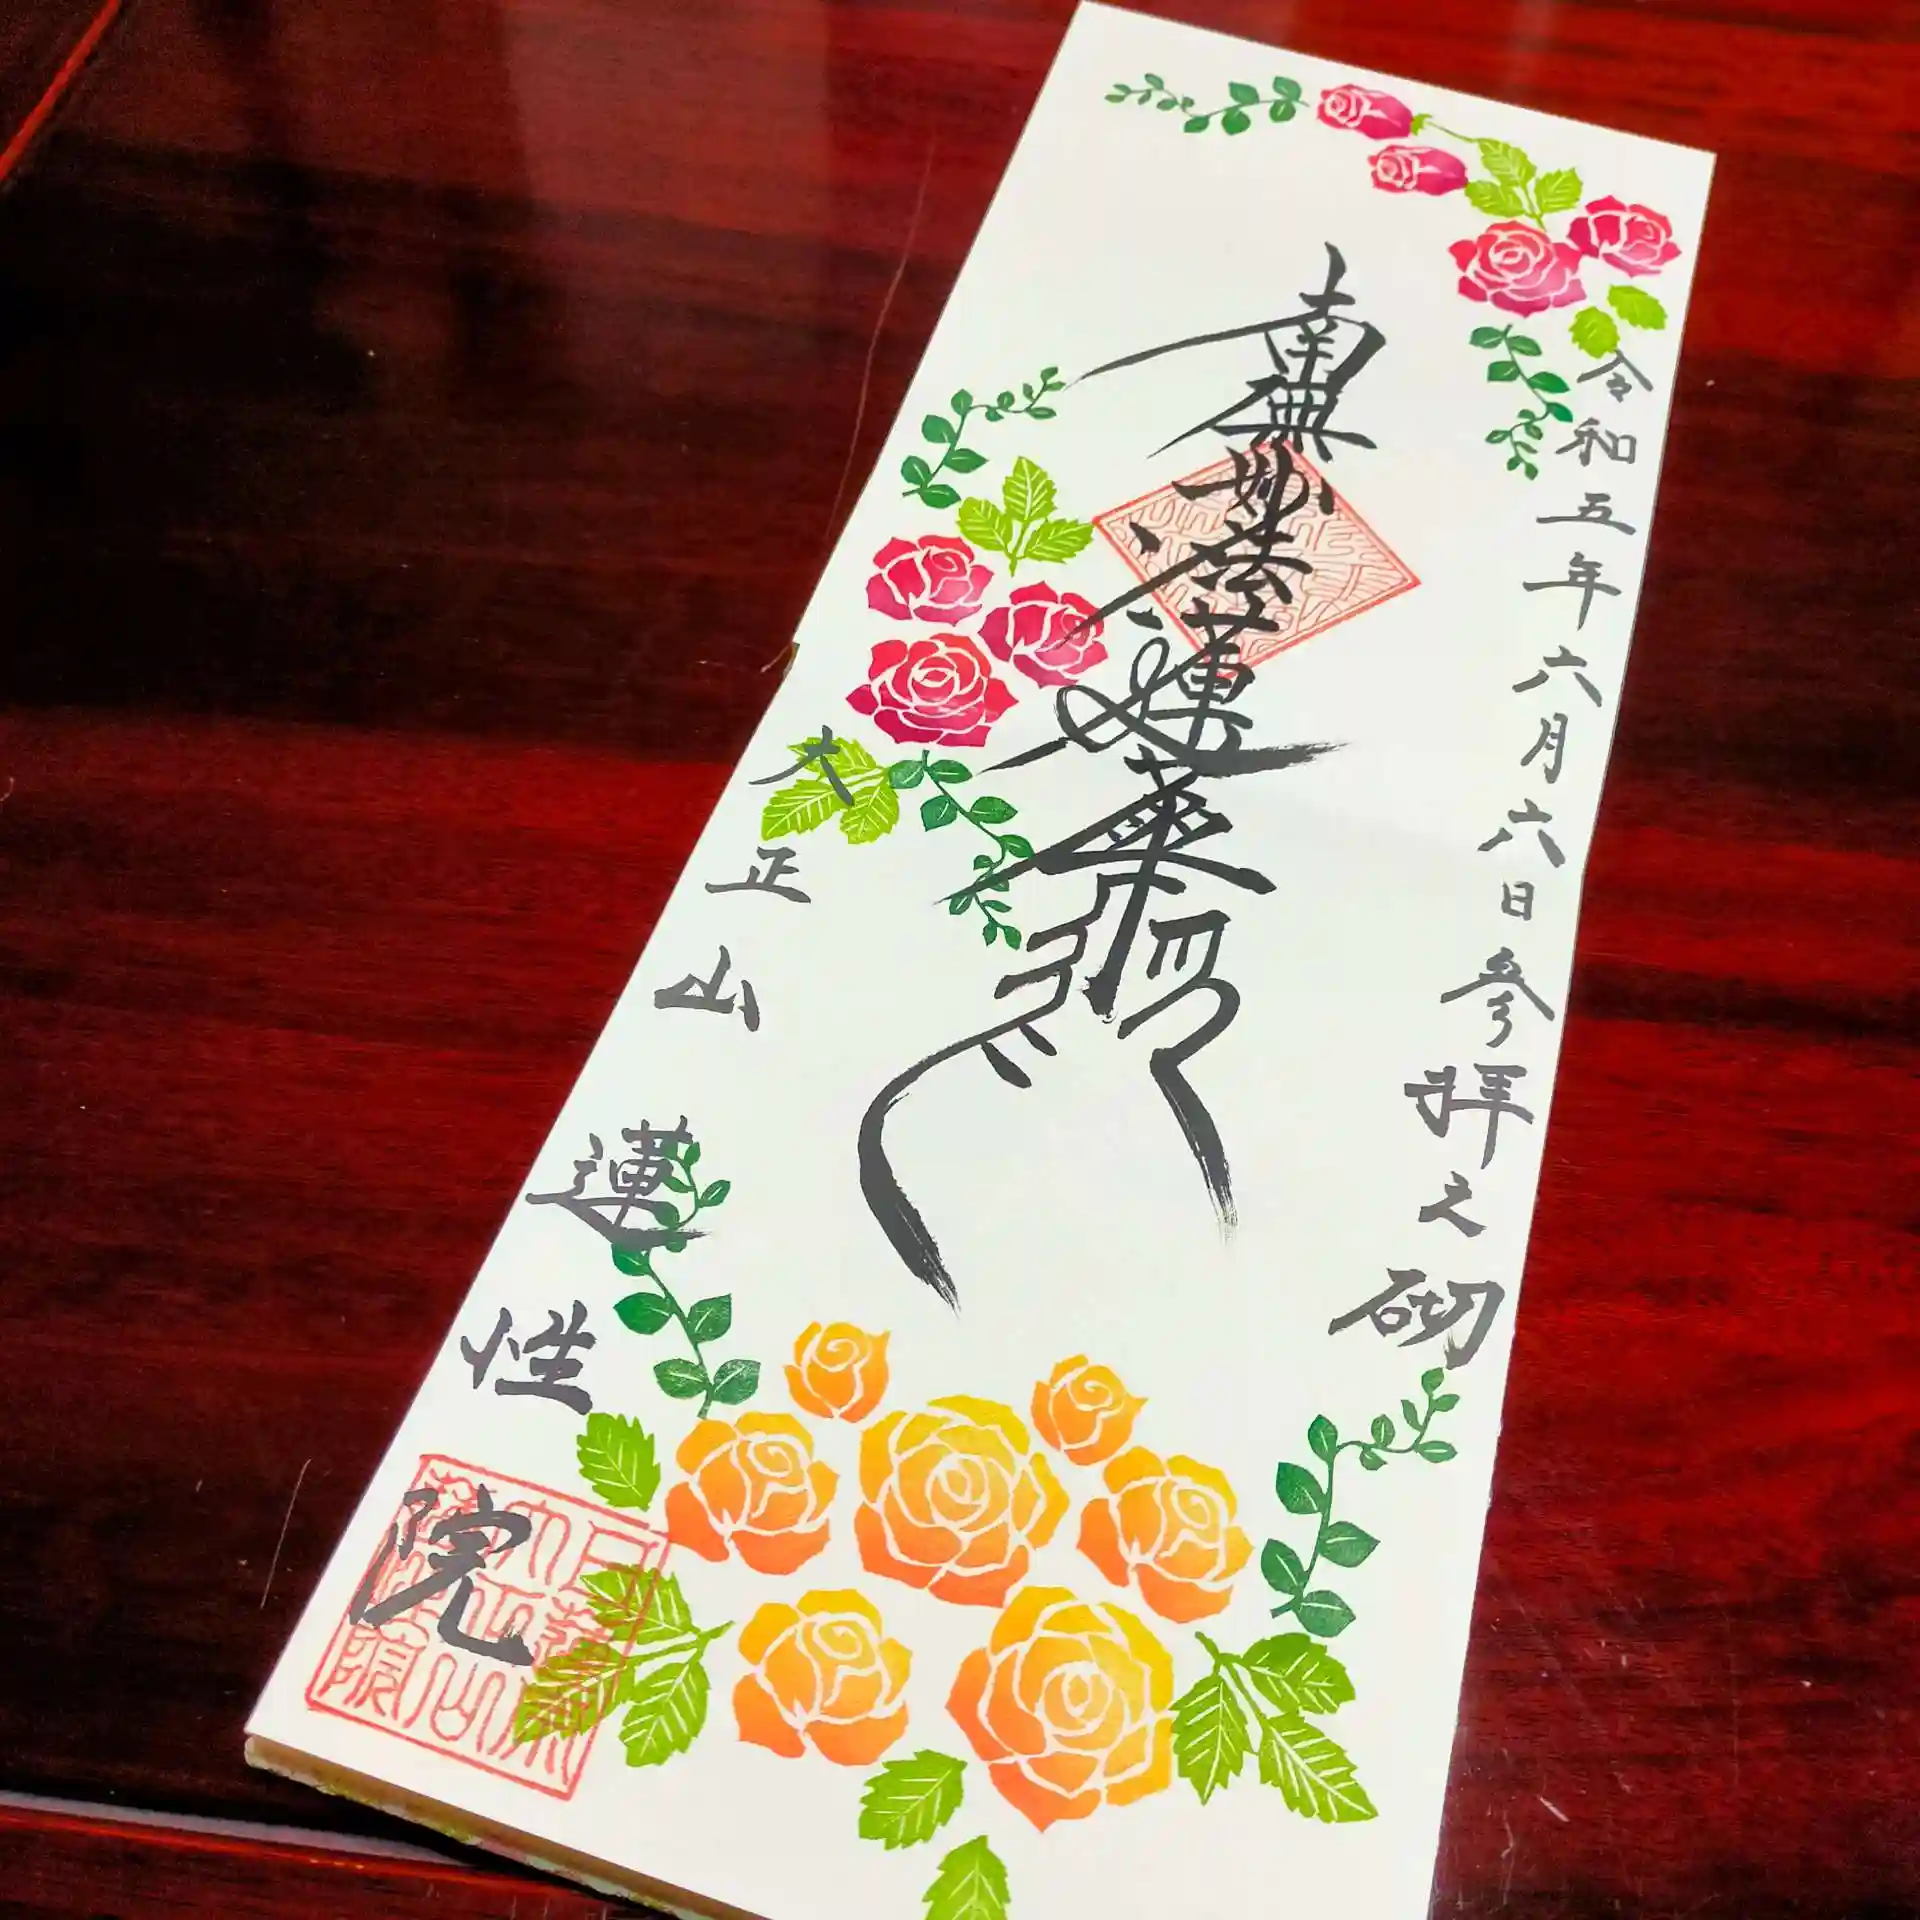 令和五年六月六日参拝之砌
南無妙法蓮華経
大正山
蓮性院